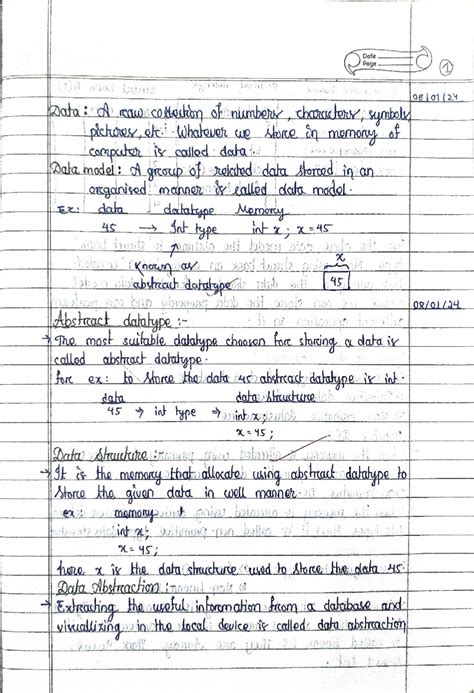 Date
Page
1
06/01/24
Data : A raw collection of numbers, characters, symbols
pictures, etc. Whatever we store in memory of
computer is called data.
Data model : A group of related data stored in an
organised manner is called data model.
Ex: data datatype Memory
45 → Int type int x ; x = 45
known as
abstract datatype
x
45
08/01/24
Abstract datatype :-
→ The most suitable datatype choosen for storing a data is
called abstract datatype.
for ex: to store the data 45 abstract datatype is int.
data data structure
45 → int type → int x ;
x = 45 ;
Data Structure :-
→ It is the memory that allocate using abstract datatype to
store the given data in well manner.
ex : memory
int x;
x = 45;
here x is the data structure used to store the data 45.
Data Abstraction :-
→ Extracting the useful information from a database and
visuallizing in the local device is called data abstraction